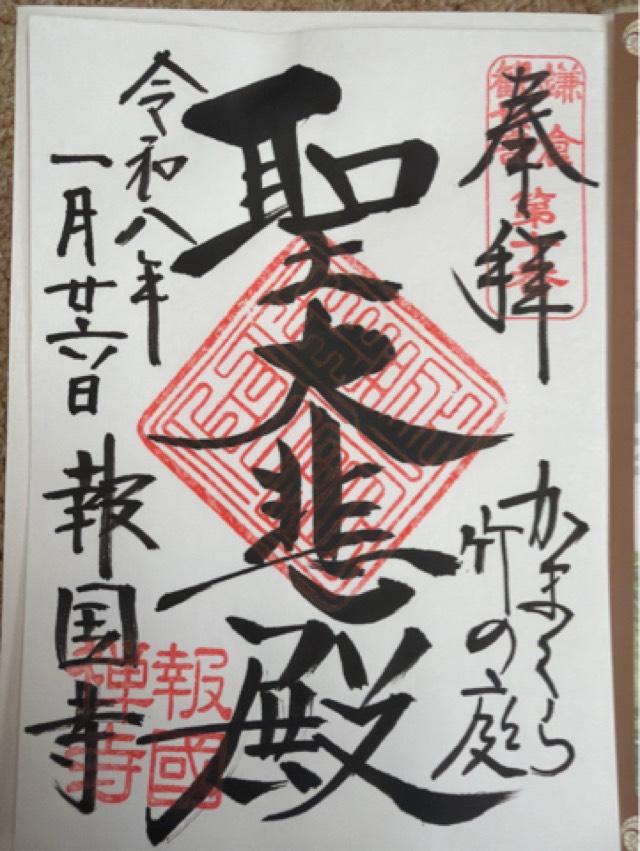 奉拝
鎌倉
第十番
かまくら
竹の庭
聖大悲殿
令和八年
一月廿六日
報国寺
報國
禅寺